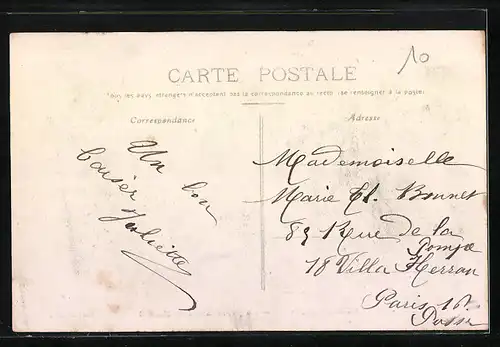 10
CARTE POSTALE
Tous les pays étrangers n'acceptent pas la correspondance au recto (se renseigner à la poste)
Correspondance
Adresse
Un bon
baiser
Juliette
Mademoiselle
Marie Et. Bonnet
83 Rue de la
Pompe
18 Villa Herran
Paris 16e
Passy